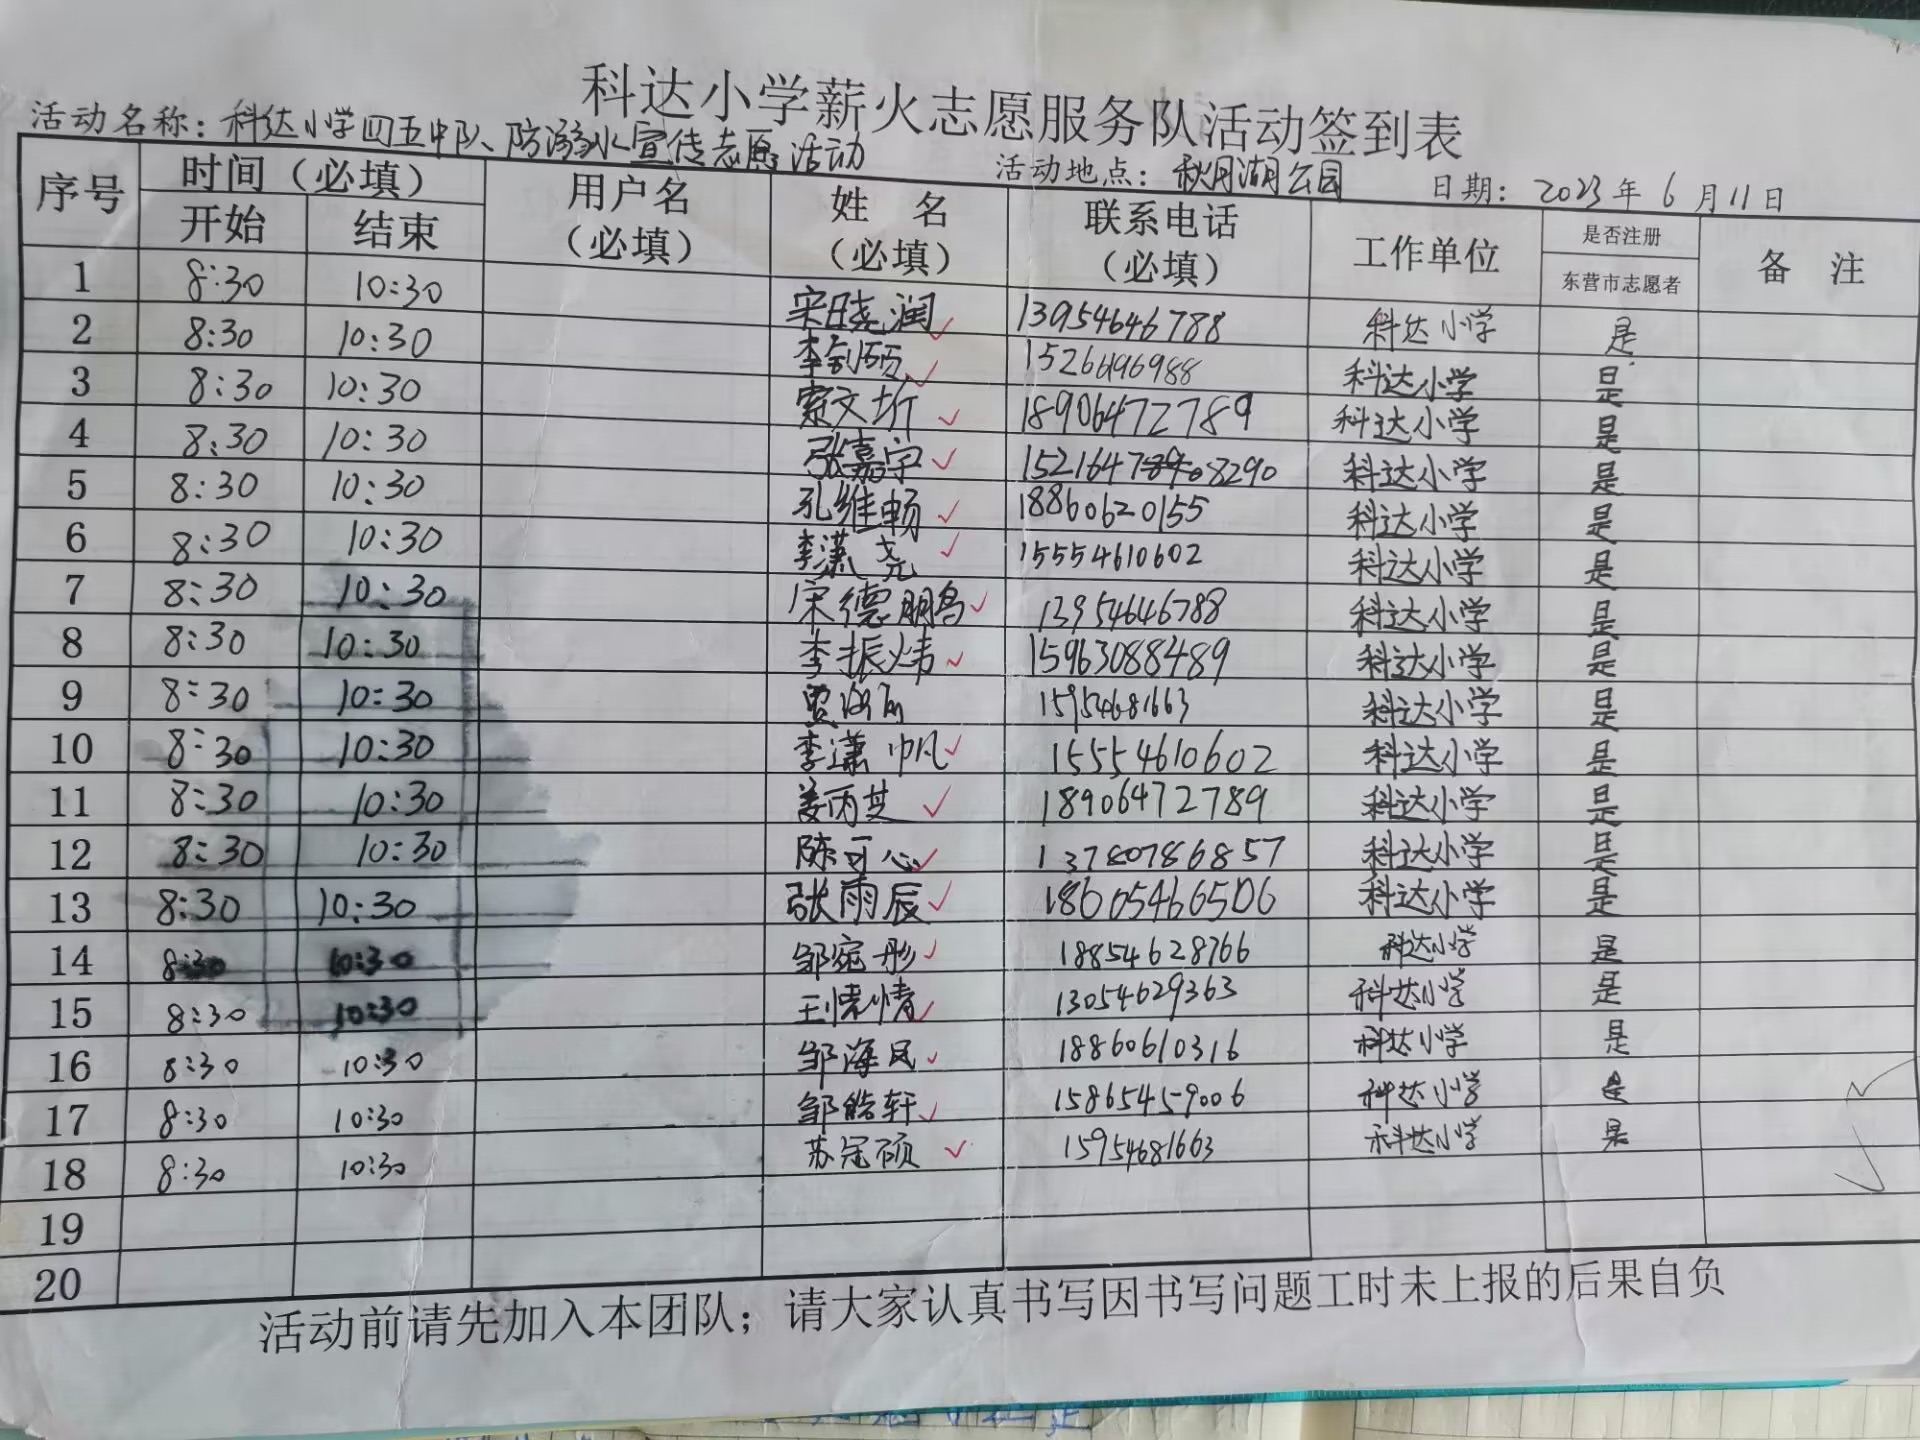 科达小学薪火志愿服务队活动签到表
活动名称：科达小学四五中队、防溺水宣传志愿活动 活动地点：秋月湖公园 日期：2023年6月11日
序号 时间（必填） 用户名（必填） 姓 名（必填） 联系电话（必填） 工作单位 是否注册 备 注
开始 结束 东营市志愿者
1 8:30 10:30 宋晓润 13954646788 科达小学 是
2 8:30 10:30 李剑硕 15266196988 科达小学 是
3 8:30 10:30 索文圻 18906472789 科达小学 是
4 8:30 10:30 张嘉宇 15216478908290 科达小学 是
5 8:30 10:30 孔维畅 18860620155 科达小学 是
6 8:30 10:30 李潇尧 15554610602 科达小学 是
7 8:30 10:30 宋德鹏 13954646788 科达小学 是
8 8:30 10:30 李振炜 15963088489 科达小学 是
9 8:30 10:30 贾 15954681663 科达小学 是
10 8:30 10:30 李潇帆 15554610602 科达小学 是
11 8:30 10:30 姜丙芝 18906472789 科达小学 是
12 8:30 10:30 陈可心 13780786857 科达小学 是
13 8:30 10:30 张雨辰 18605466506 科达小学 是
14 8:30 10:30 邹宛彤 18854628766 科达小学 是
15 8:30 10:30 王情 13054629363 科达小学 是
16 8:30 10:30 邹海凤 18860610316 科达小学 是
17 8:30 10:30 邹皓轩 15865459006 科达小学 是
18 8:30 10:30 苏冠硕 15954681663 科达小学 是
19
20
活动前请先加入本团队；请大家认真书写因书写问题工时未上报的后果自负